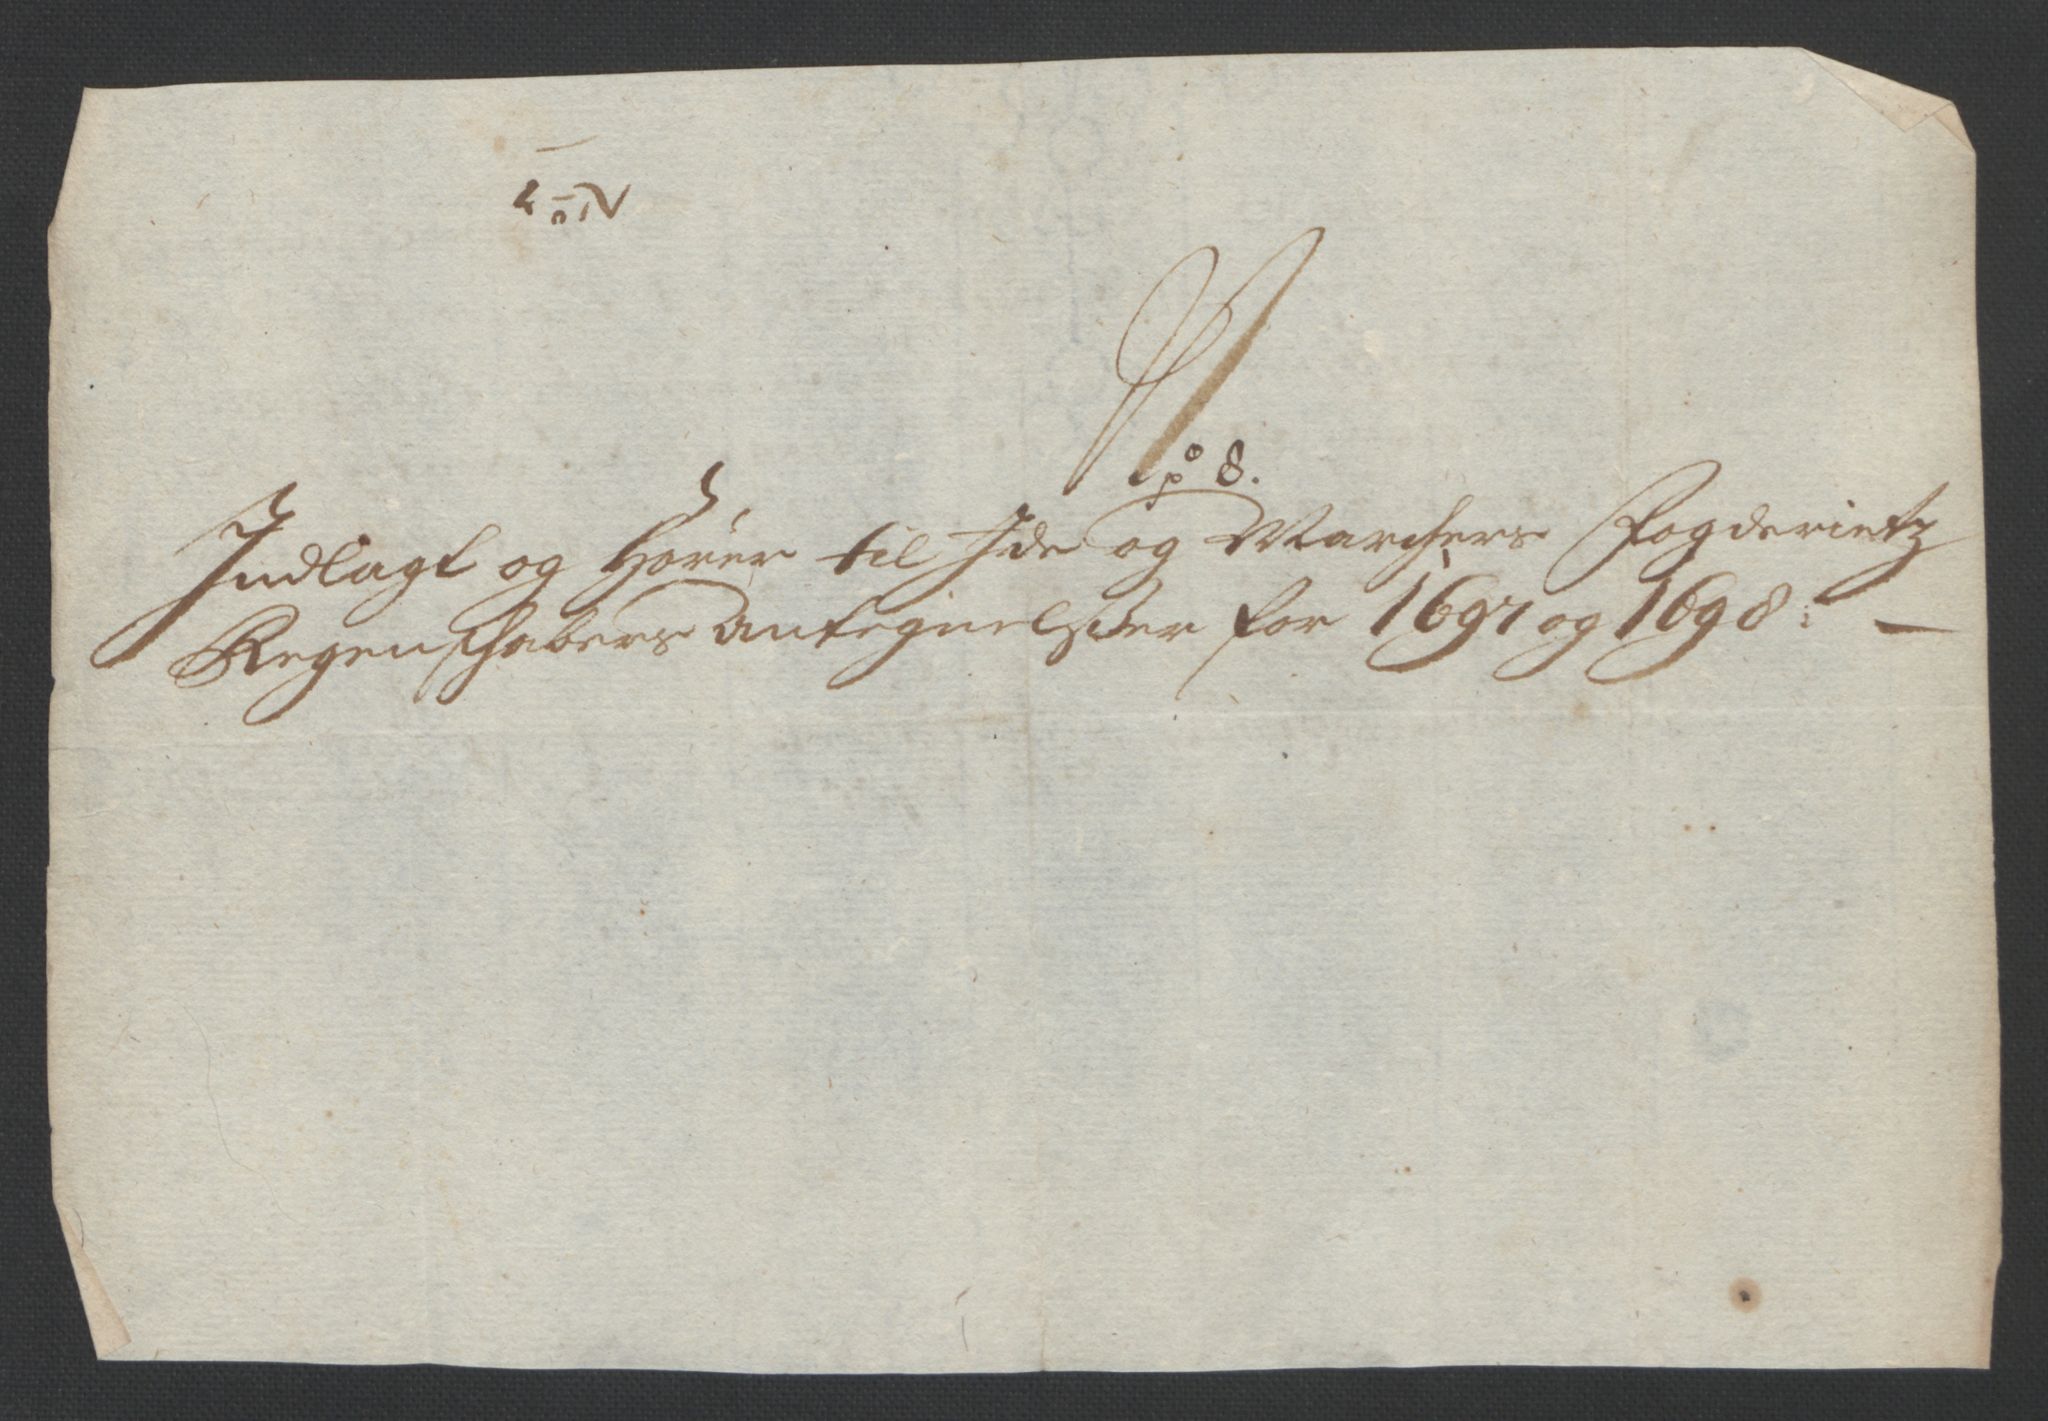 N
po 8.
Indlagt og Hörer til Ide og Marchers Fogderietz
Regenschabers Antegnelsser for 1697 og 1698: